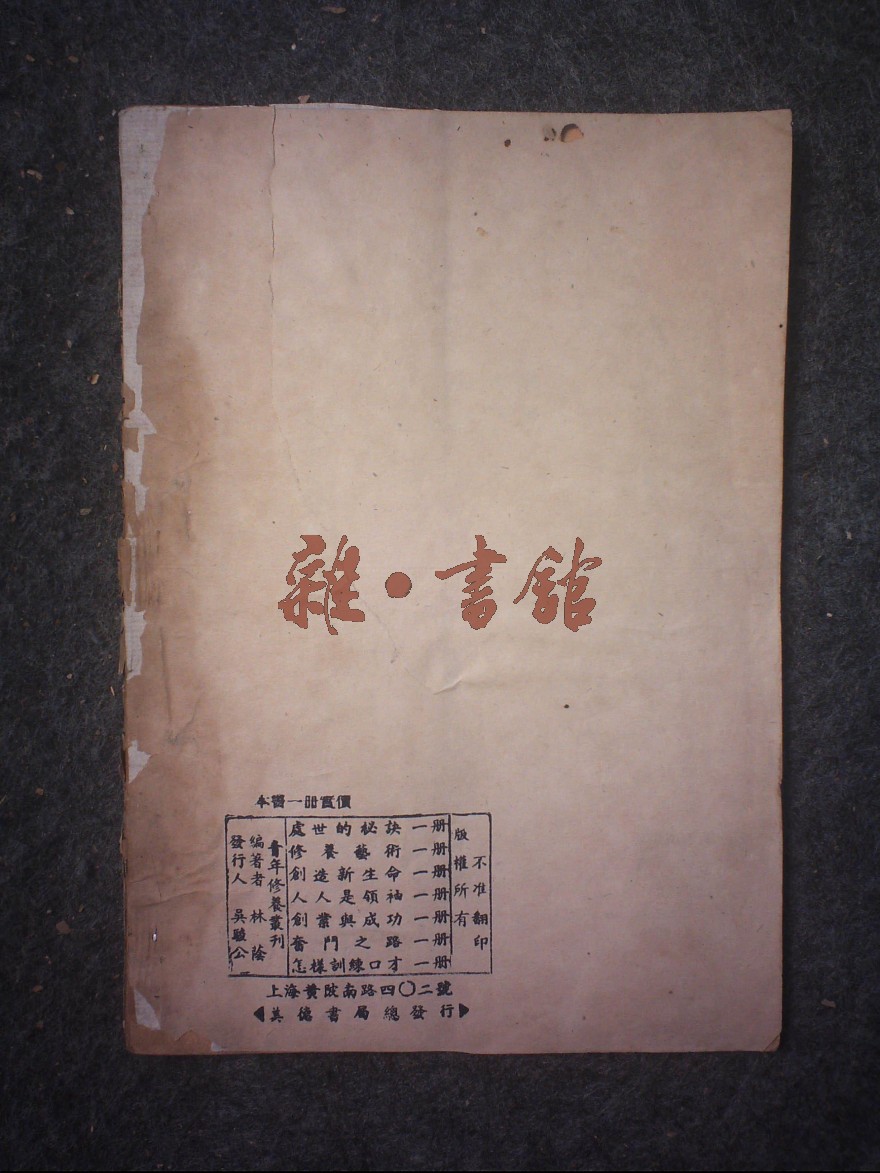 雜·書館
本書一冊實價
版權所有
不准翻印
處世的秘訣 一册
修養藝術 一册
創造新生命 一册
人人是領袖 一册
創業與成功 一册
奮鬥之路 一册
怎樣訓練口才 一册
青年修養叢刊
編著者 林蔭
發行人 吳駿公
上海黄陂南路四〇二號
美德書局總發行